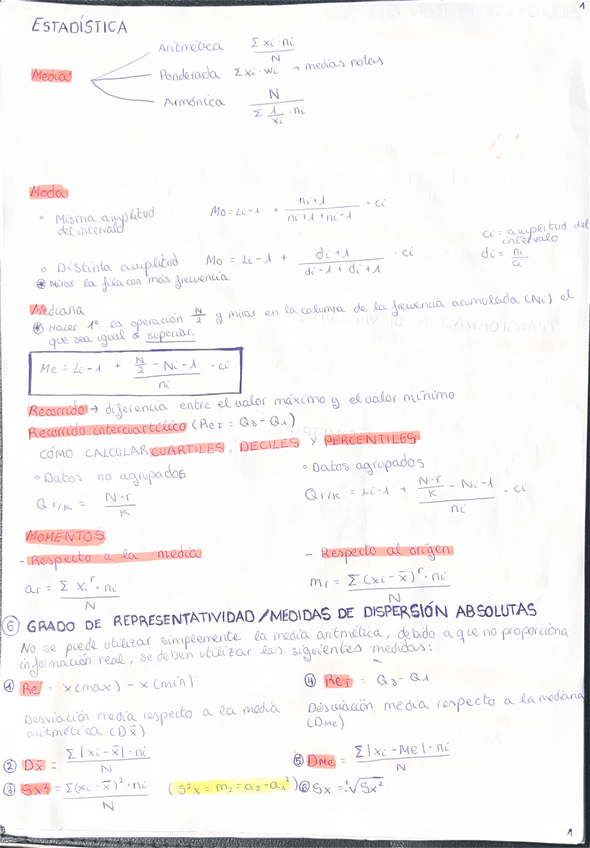 1
ESTADÍSTICA
Media
Aritmética Σ xi · ni / N
Ponderada Σ xi · wi → medias notas
Armónica N / Σ 1/xi · ni
Moda
◦ Misma amplitud del intervalo Mo = Li-1 + ni+1 / ni+1 + ni-1 · ci
ci = amplitud del intervalo
◦ Distinta amplitud Mo = Li-1 + di+1 / di-1 + di+1 · ci
di = ni / ci
⊛ Mirar la fila con más frecuencia
Mediana
⊛ Hacer 1º la operación N/2 y mirar en la columna de la frecuencia acumulada (Ni) el
que sea igual o superior.
Me = Li-1 + N/2 - Ni-1 / ni · ci
Recorrido → diferencia entre el valor máximo y el valor mínimo
Recorrido intercuartílico (ReI = Q3 - Q1)
CÓMO CALCULAR CUARTILES, DECILES Y PERCENTILES
◦ Datos no agrupados
Q r/k = N · r / k
◦ Datos agrupados
Q r/k = Li-1 + N·r/k - Ni-1 / ni · ci
MOMENTOS
- Respecto a la media
ar = Σ xi^r · ni / N
- Respecto al origen
mr = Σ (xi - x̄)^r · ni / N
⑥ GRADO DE REPRESENTATIVIDAD/MEDIDAS DE DISPERSIÓN ABSOLUTAS
No se puede utilizar simplemente la media aritmética, debido a que no proporciona
información real, se deben utilizar las siguientes medidas:
① Re = x(max) - x(mín)
④ ReI = Q3 - Q1
Desviación media respecto a la media
aritmética (Dx̄)
Desviación media respecto a la mediana
(DMe)
② Dx̄ = Σ |xi - x̄| · ni / N
⑤ DMe = Σ |xi - Me| · ni / N
③ Sx² = Σ(xi - x̄)² · ni / N (S²x = m2 = a2 - a1²)
⑥ Sx = +√Sx²
1